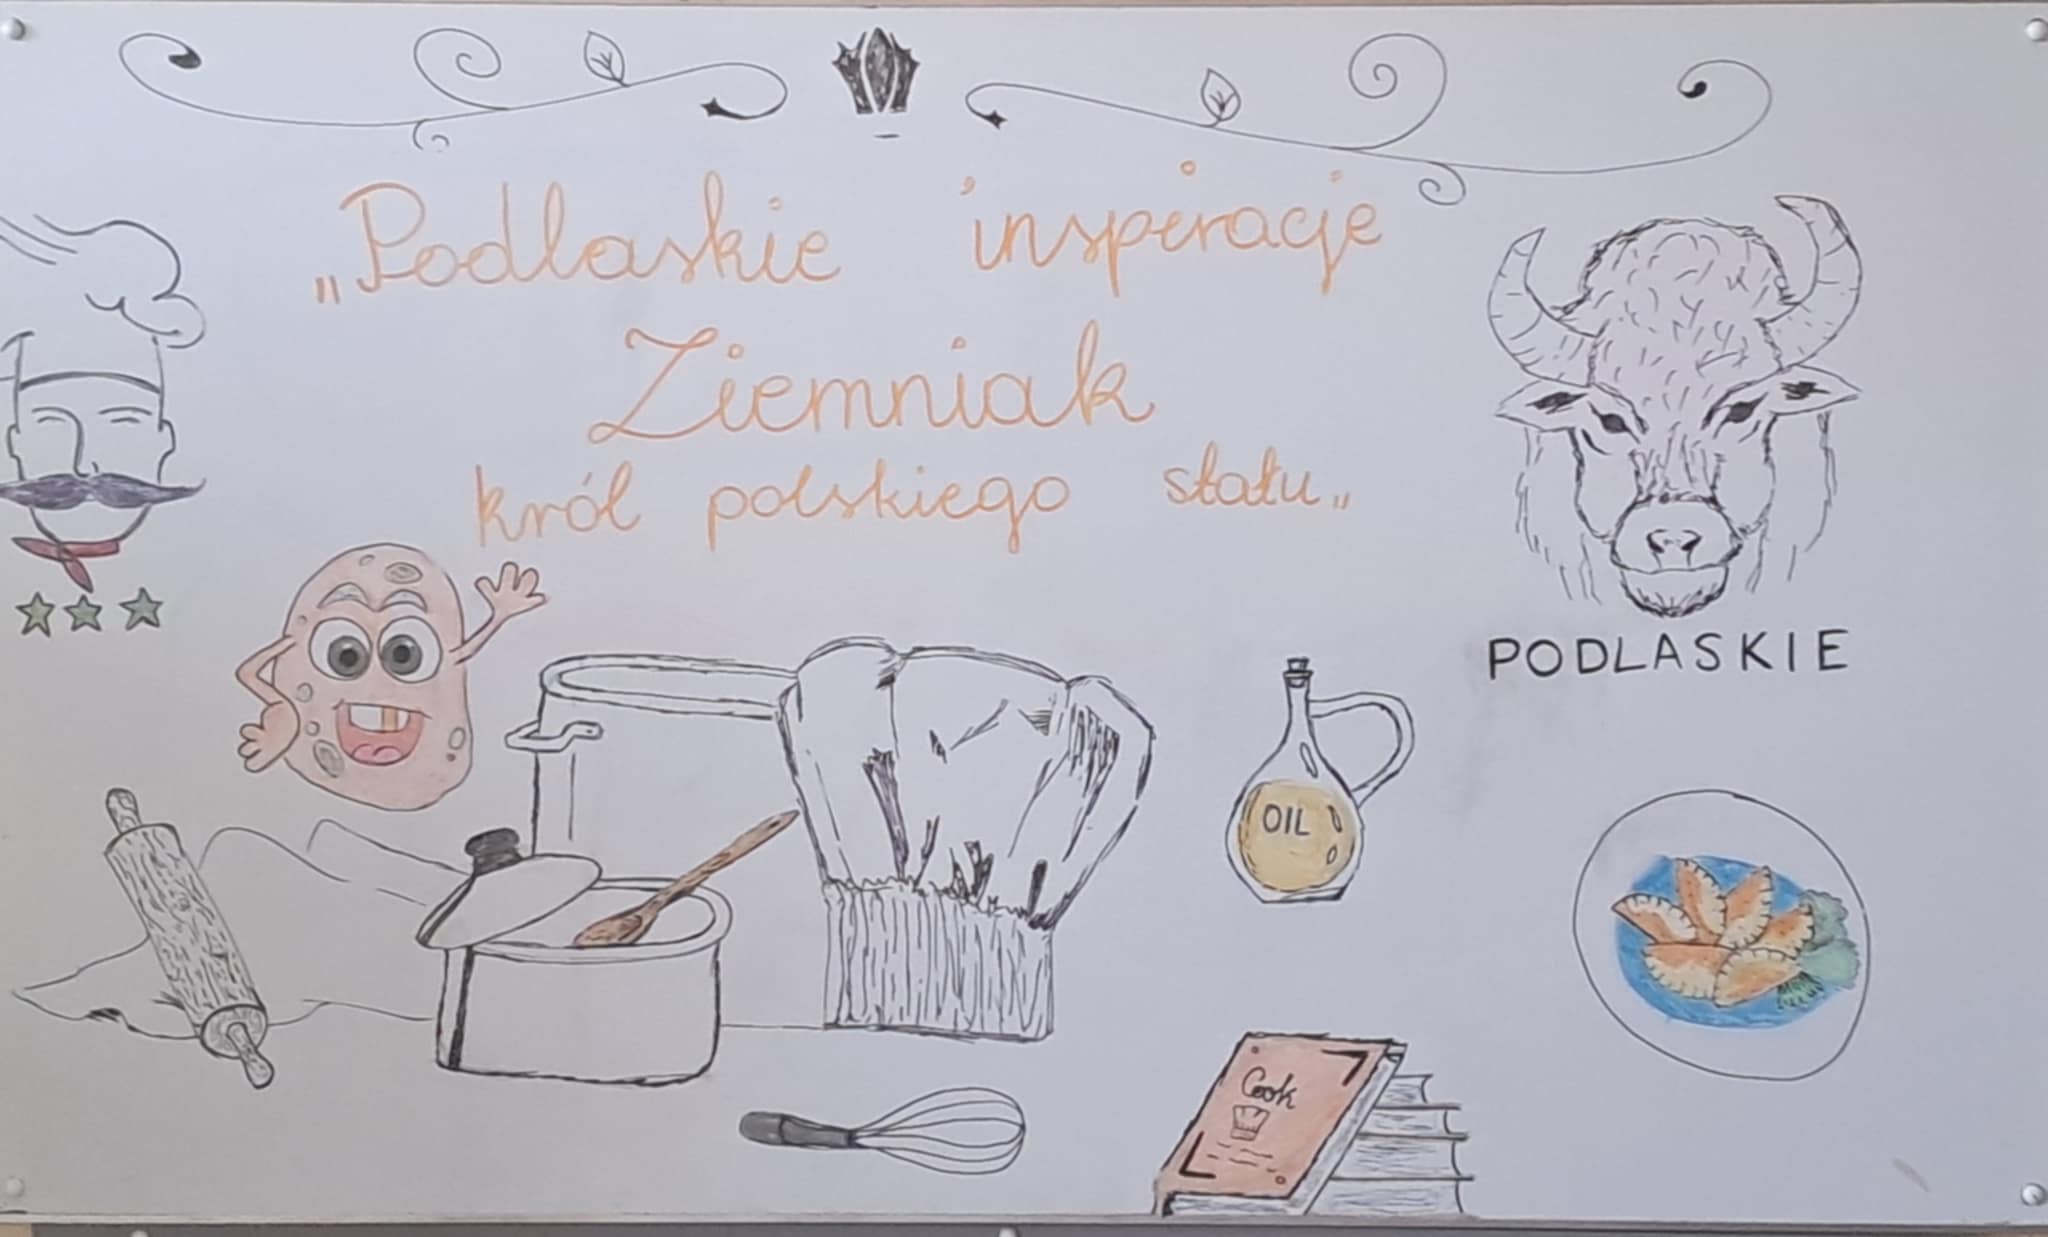 „Podlaskie inspiracje
Ziemniak
król polskiego stołu„
PODLASKIE
OIL
Cook